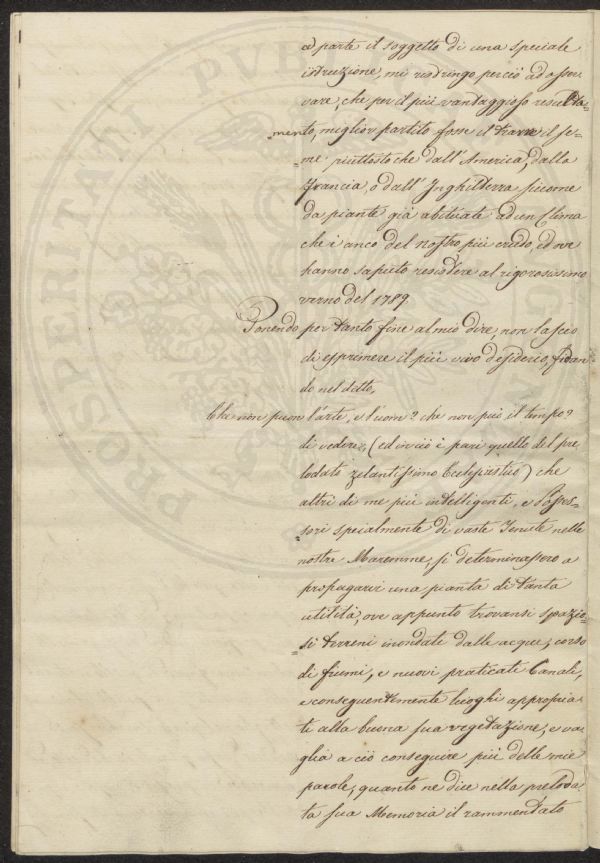 a parte il soggetto di una speciale
istruzione, mi restringo perciò ad osser
vare, che per il più vantaggioso resulta=
=mento, miglior partito fosse il trarre il se=
=me piuttosto che dall'America, dalla
Francia, o dall'Inghilterra siccome
da piante già abituate ad un Clima
che è anco del nostro più crudo, ed ove
hanno saputo resistere al rigorosissimo
verno del 1789.
Ponendo per tanto fine al mio dire, non lascio
di esprimere il più vivo desiderio, fidan
do nel detto,
Che non puon l'arte, e l'uom? che non può il tempo?
di vedere, (ed in ciò è pari quello del pre
lodato zelantissimo Ecclesiastico) che
altri di me più intelligenti, e Posses=
=sori specialmente di vaste Tenute nelle
nostre Maremme, si determinassero a
propagarvi una pianta di tanta
utilità, ove appunto trovansi spazio=
=si terreni inondati dalle acque, corso
di fiumi, e nuovi praticati Canali,
e conseguentemente luoghi appropia
ti alla buona sua vegetazione, e va
glia a ciò conseguire più delle mie
parole, quanto ne dice nella preloda
ta sua Memoria il rammentato
PROSPERITATI PVBLICAE